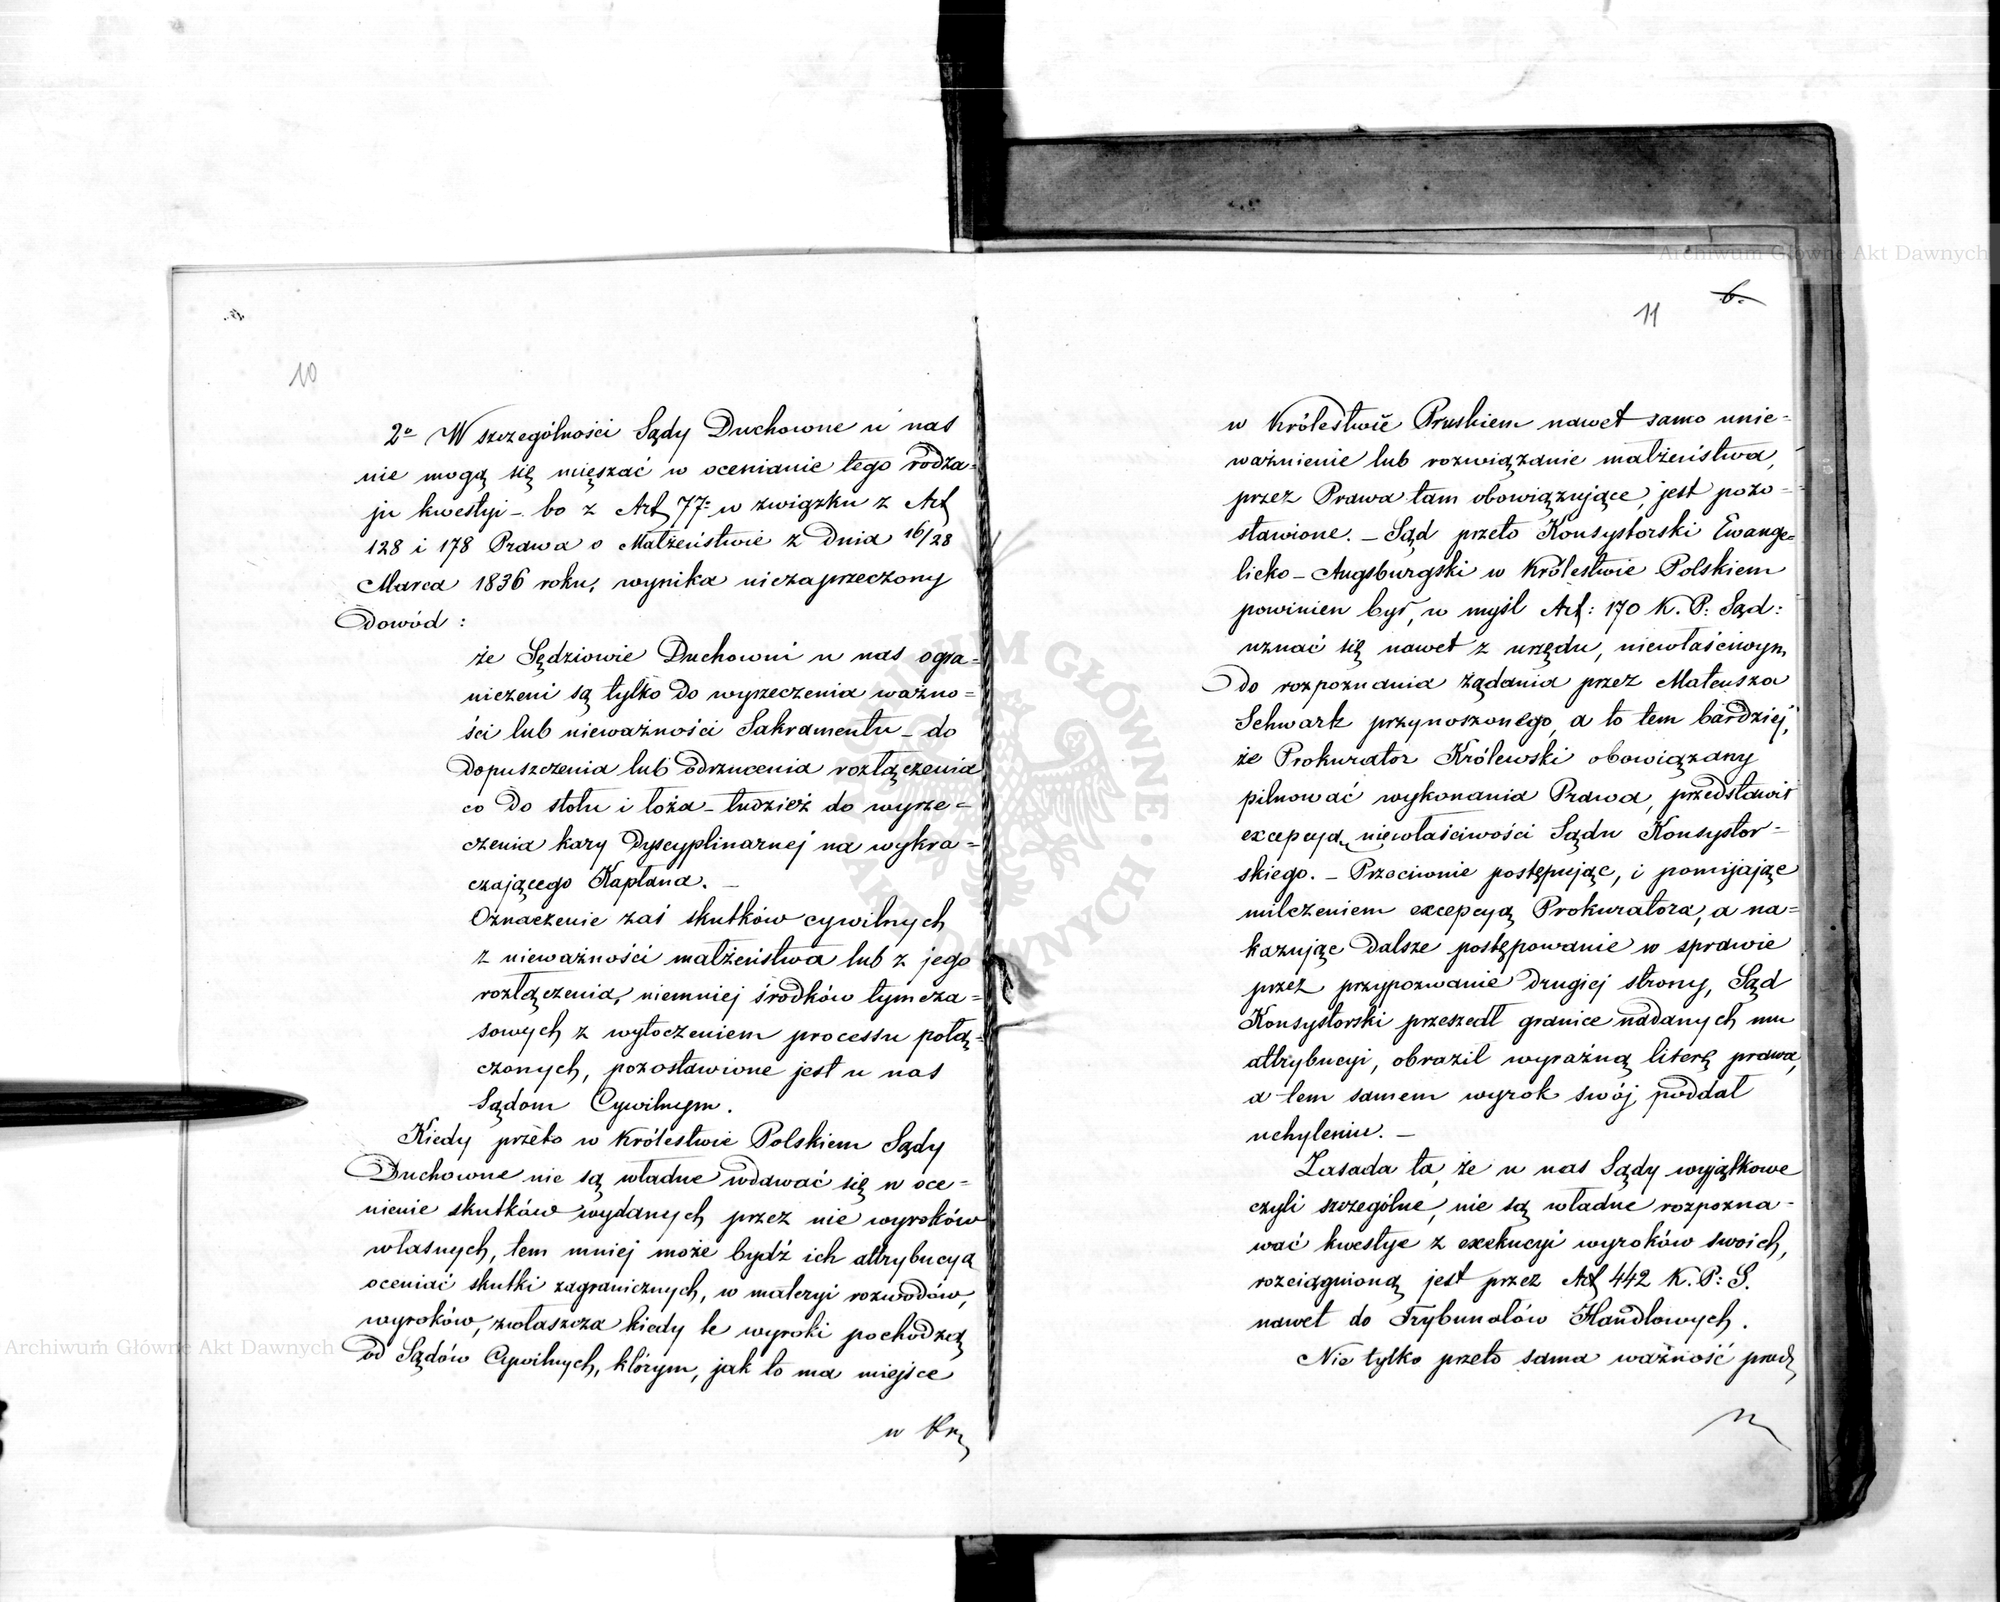 10
2º W szczególności Sądy Duchowne u nas
nie mogą się mięszać w ocenianie tego rodza-
ju kwestyi – bo z Art 77º w związku z Art
128 i 178 Prawa o Małżeństwie z Dnia 16/28
Marca 1836 roku, wynika niezaprzeczony
Dowód :
że Sędziowie Duchowni u nas ogra-
niczeni są tylko do wyrzeczenia ważno-
ści lub nieważności Sakramentu – do
dopuszczenia lub odrzucenia rozłączenia
co do stołu i łoża – tudzież do wyrze-
czenia kary Dyscyplinarnej na wykra-
czającego Kapłana. –
Oznaczenie zaś skutków cywilnych
z nieważności małżeństwa lub z jego
rozłączenia, niemniej środków tymcza-
sowych z wytoczeniem processu połą-
czonych, pozostawione jest u nas
Sądom Cywilnym.
Kiedy przeto w Królestwie Polskiem Sądy
Duchowne nie są władne wdawać się w oce-
nienie skutków wydanych przez nie wyroków
własnych, tem mniej może bydź ich attrybucyą
oceniać skutki zagranicznych, w materyi rozwodów,
wyroków, zwłaszcza kiedy te wyroki pochodzą
od Sądów Cywilnych, którym, jak to ma miejsce
w Kr
11 6.
w Królestwie Pruskiem nawet samo unie-
ważnienie lub rozwiązanie małżeństwa,
przez Prawa tam obowiązujące, jest pozo-
stawione. – Sąd przeto Konsystorski Ewange-
licko – Augsburgski w Królestwie Polskiem
powinien był, w myśl Art: 170 K. P. Sąd:
uznać się nawet z urzędu, niewłaściwym
do rozpoznania żądania przez Mateusza
Schwark przynoszonego, a to tem bardziej,
że Prokurator Królewski obowiązany
pilnować wykonania Prawa, przedstawił
excepcyą niewłaściwości Sądu Konsystor-
skiego. – Przeciwnie postępując, i pomijając
milczeniem excepcyą Prokuratora, a na-
kazując dalsze postępowanie w sprawie
przez przypozwanie drugiej strony, Sąd
Konsystorski przeszedł granice nadanych mu
attrybucyi, obraził wyraźną literę prawa,
a tem samem wyrok swój, poddał
uchyleniu. –
Zasada ta, że u nas Sądy wyjątkowe
czyli szczególne, nie są władne rozpozna-
wać kwestye z exekucyi wyroków swoich,
rozciągnioną jest przez Art 442 K. P. S.
nawet do Trybunałów Handlowych.
Nie tylko przeto sama ważność prawd
Archiwum Główne Akt Dawnych
Archiwum Główne Akt Dawnych
ARCHIWUM GŁÓWNE AKT DAWNYCH